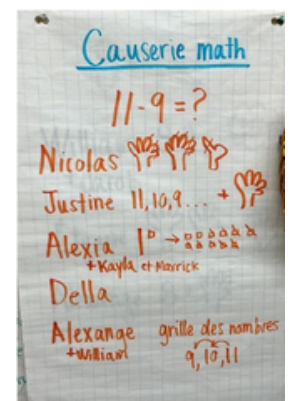 Causerie math
11-9=?
Nicolas
Justine 11, 10, 9... +
Alexia
+Kayla et Mavrick
Della
Alexange grille des nombres
+William 9, 10, 11